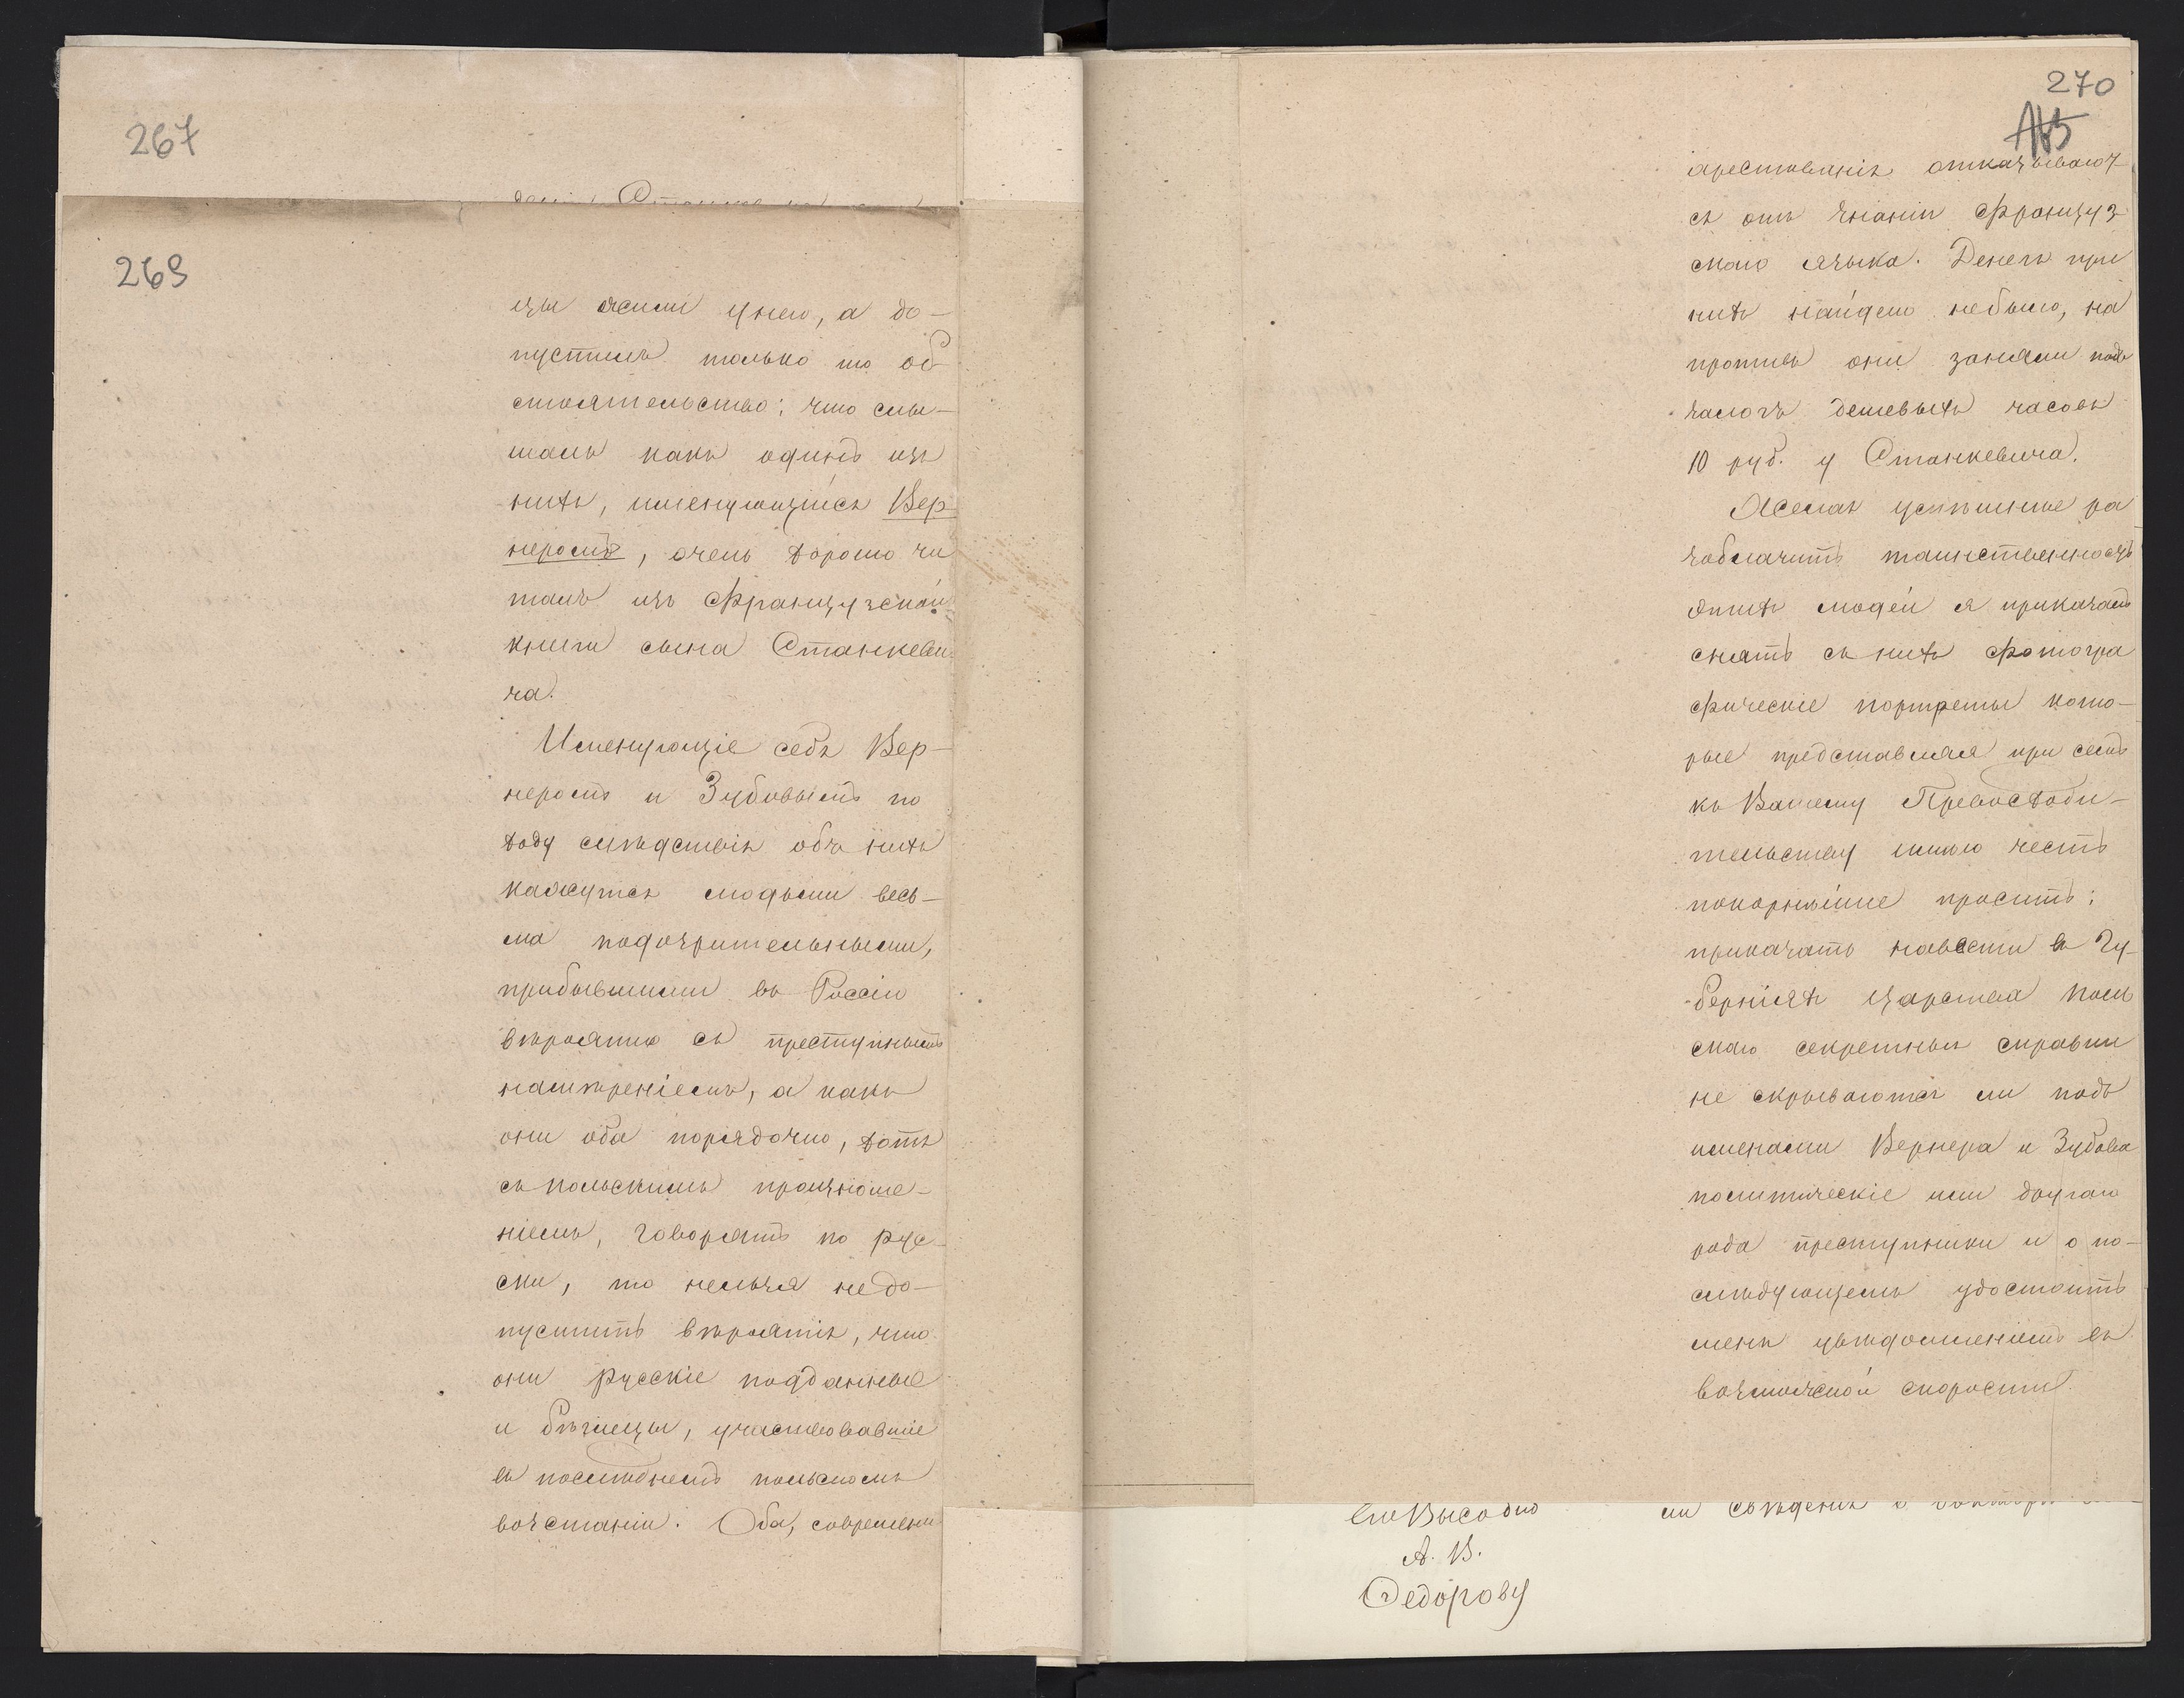 267
269
цы жили у него, а до-
пустилъ только то об-
стоятельство: что слы-
шалъ какъ одинъ изъ
нихъ, именующійся Вер
неромъ, очень хорошо чи
талъ изъ французской
книги сына Станкеви-
ча.
Именующіе себя Вер-
неромъ и Зубовымъ по
ходу слѣдствія объ нихъ
кажутся людьми весь-
ма подозрительными,
прибывшими въ Россію
вѣроятно съ преступнымъ
намѣреніемъ, а какъ
они оба порядочно, хотя
съ польскимъ произноше-
ніемъ, говорятъ по рус-
ски, то нельзя не до-
пустить вѣроятія, что
они русскіе подданные
и бѣглецы, участвовавшіе
въ послѣднемъ польскомъ
возстаніи. Оба, современи
270
арестованія отказывают-
ся отъ знанія француз
скаго языка. Денегъ при
нихъ найдено небыло, на
противъ они заняли подъ
залогъ дешевыхъ часовъ
10 руб. у Станкевича.
Желая успѣшнѣе ра
зоблачить таинственность
этихъ людей я приказалъ
снять съ нихъ фотогра
фическіе портреты кото-
рые представляя при семъ
къ Вашему Превосходи-
тельству имѣю честь
покорнѣйше просить:
приказать навести въ Гу-
берніяхъ Царства Поль
скаго секретныя справки
не скрываются ли подъ
именами Вернера и Зубова
политическіе или другаго
рода преступники и о по-
слѣдующемъ удостоить
меня увѣдомленіемъ въ
возможной скорости.
Его Высокобл
А. В.
Федорову
ли свѣденія о